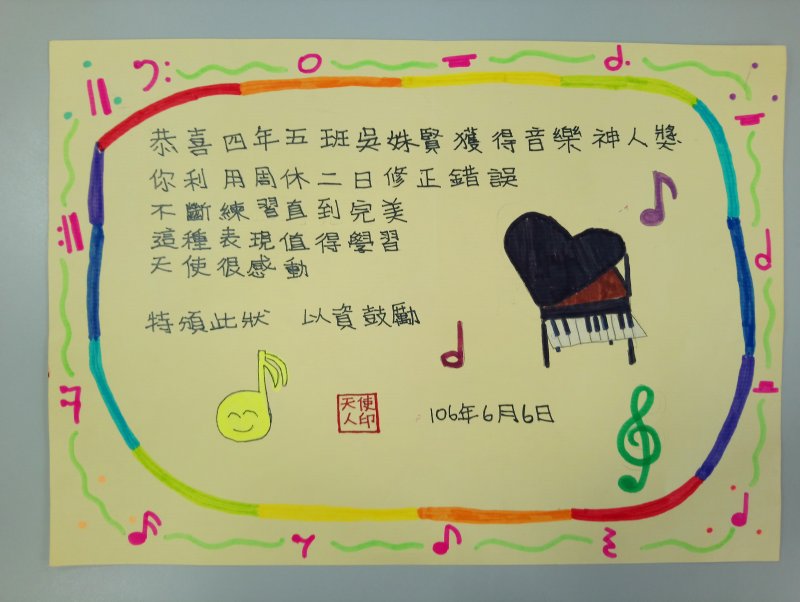 恭喜四年五班吳姝賢獲得音樂神人獎
你利用周休二日修正錯誤
不斷練習直到完美
這種表現值得學習
天使很感動
特頒此狀 以資鼓勵
天使
人印
106年6月6日